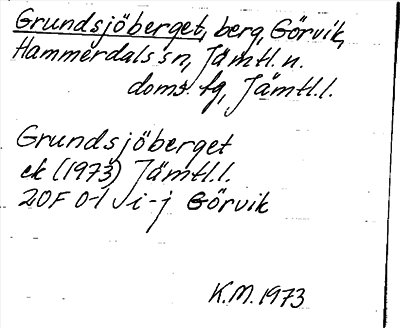 Grundsjöberget, berg, Görvik,
Hammerdals sn, Jämtl. n.
doms. tg, Jämtl. l.
Grundsjöberget
ek (1973) Jämtl. l.
20F 0-1 i-j Görvik
K.M. 1973